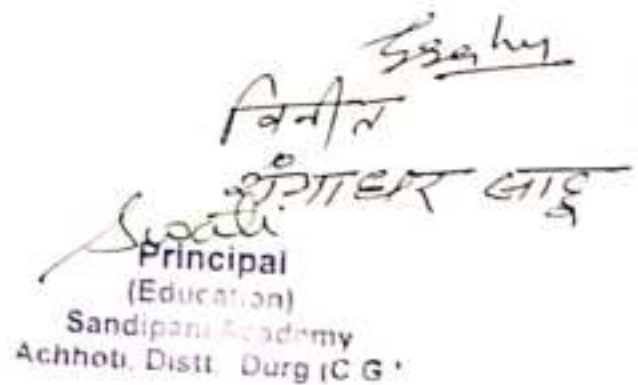 Gsahu
विनीत
गंगाधर साहू
Swati
Principal
(Education)
Sandipani Academy
Achhoti, Distt. Durg (C G